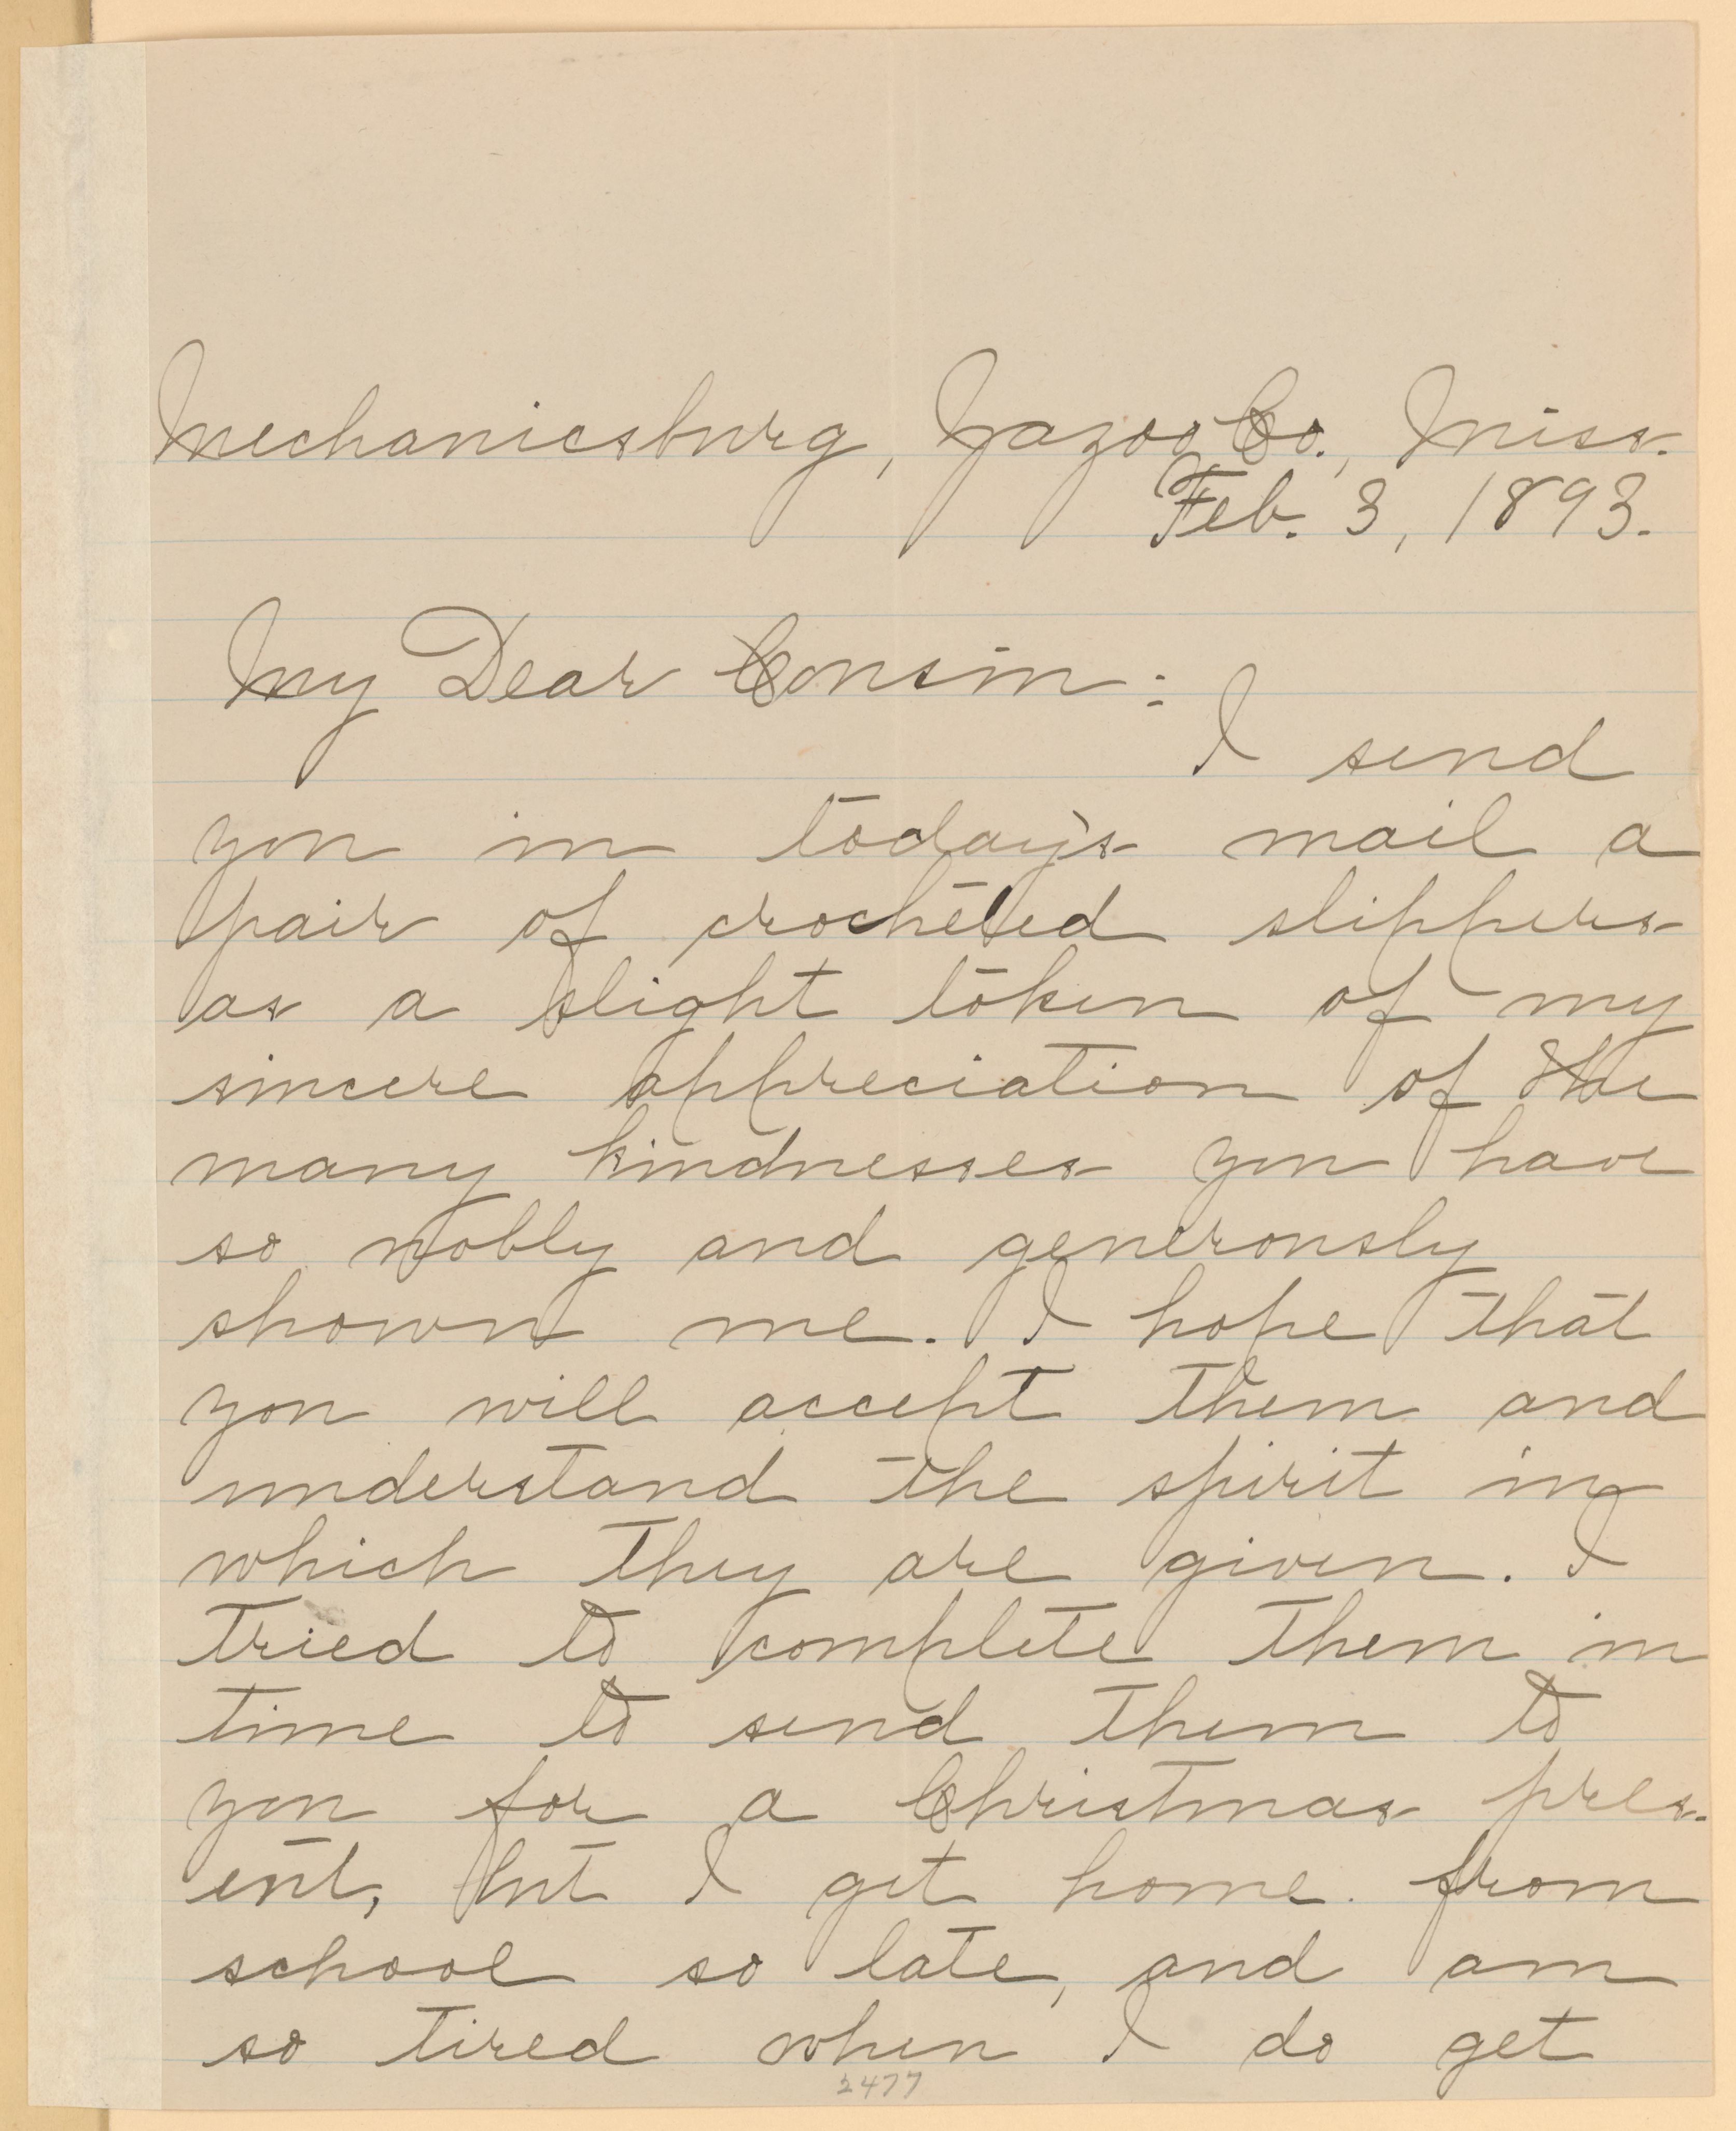 Mechanicsburg, Yazoo Co., Miss.
Feb. 3, 1893.
My Dear Cousin:
I send
you in today's mail a
pair of crocheted slippers
as a slight token of my
sincere appreciation of the
many kindnesses you have
so nobly and generously
shown me. I hope that
you will accept them and
understand the spirit in
which they are given. I
tried to complete them in
time to send them to
you for a Christmas pres-
ent, but I get home from
school so late, and am
so tired when I do get
2477